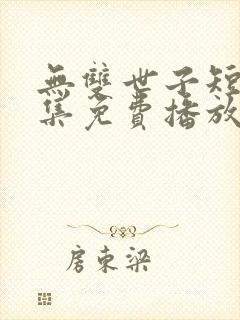 無雙世子短
集免費播放
房東梁